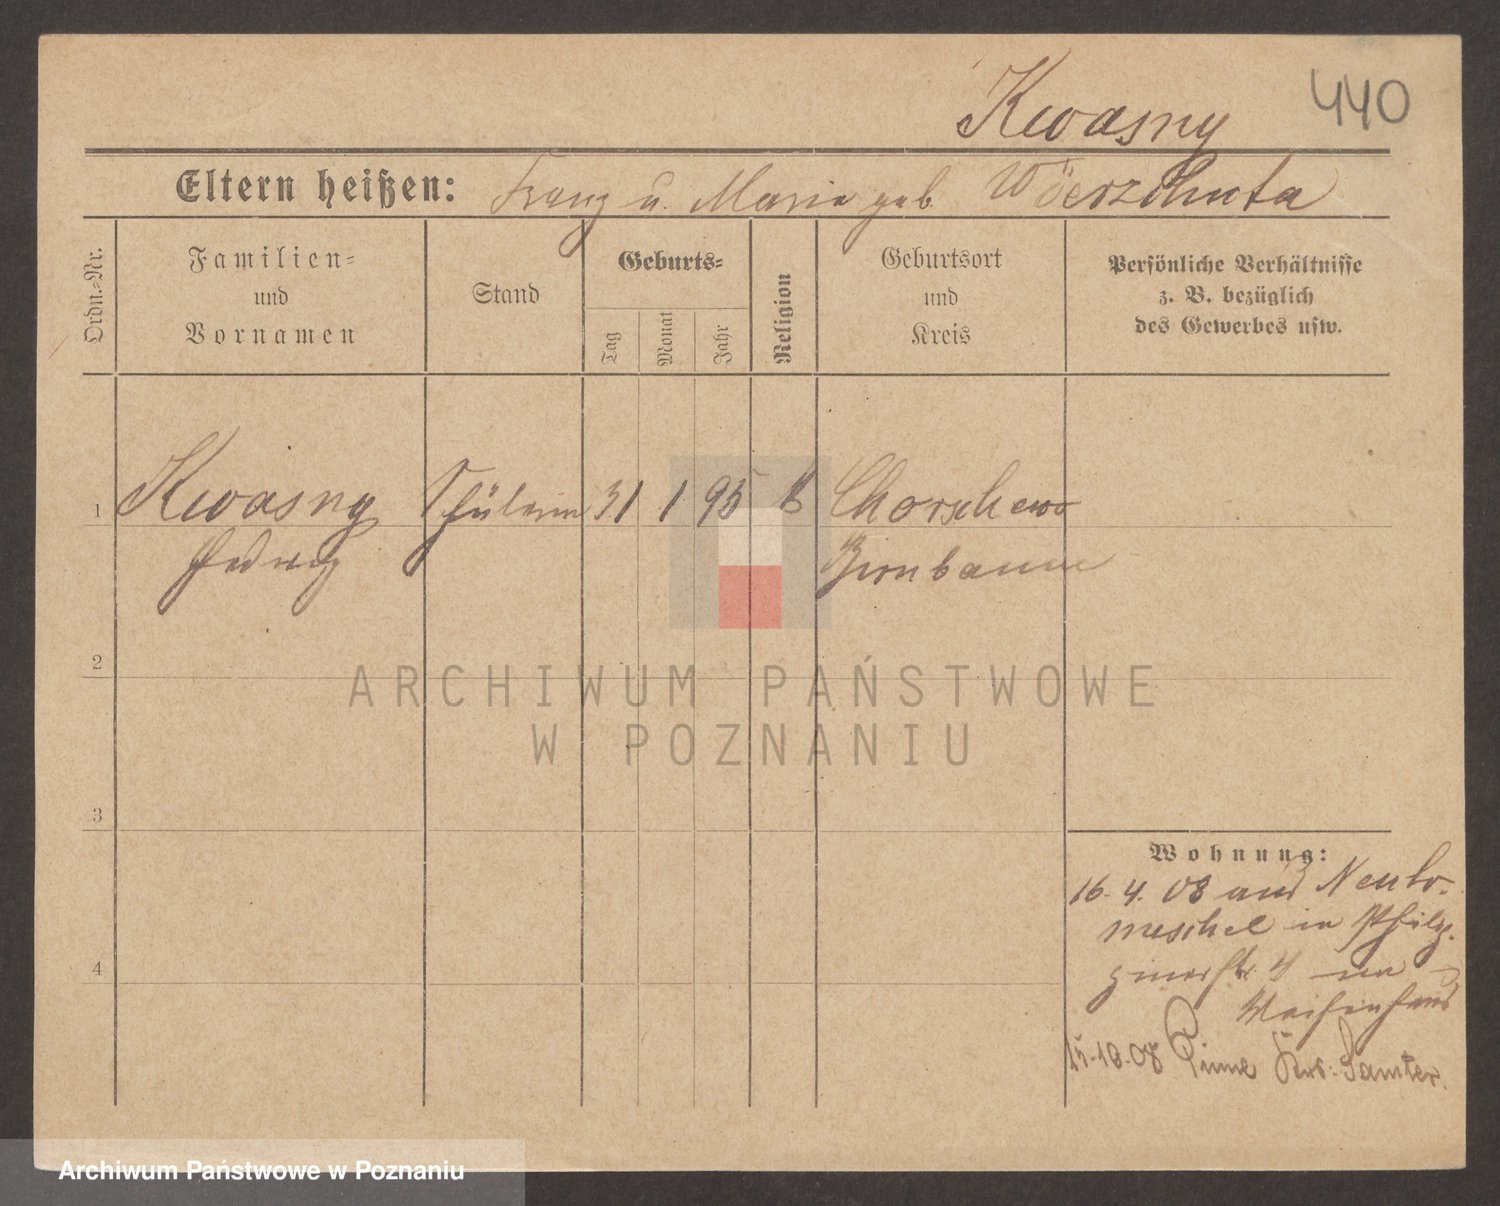 440
Kwasny
Eltern heißen: Franz u. Marie geb.
Ordn.-Nr.
Familien-
und
Vornamen
Stand
Geburts-
Tag
Monat
Jahr
Religion
Geburtsort
und
Kreis
Persönliche Verhältnisse
z. B. bezüglich
des Gewerbes usw.
1 Kwasny Schülerin 31 1 95 k Chorschewo
Hedwig Birnbaum
2
3
4
Wohnung:
16.4.08 aus Neuto-
mischel in
4 im
Waisenhaus
15.10.08 Pinne Krs. Samter.
ARCHIWUM PAŃSTWOWE
W POZNANIU
Archiwum Państwowe w Poznaniu